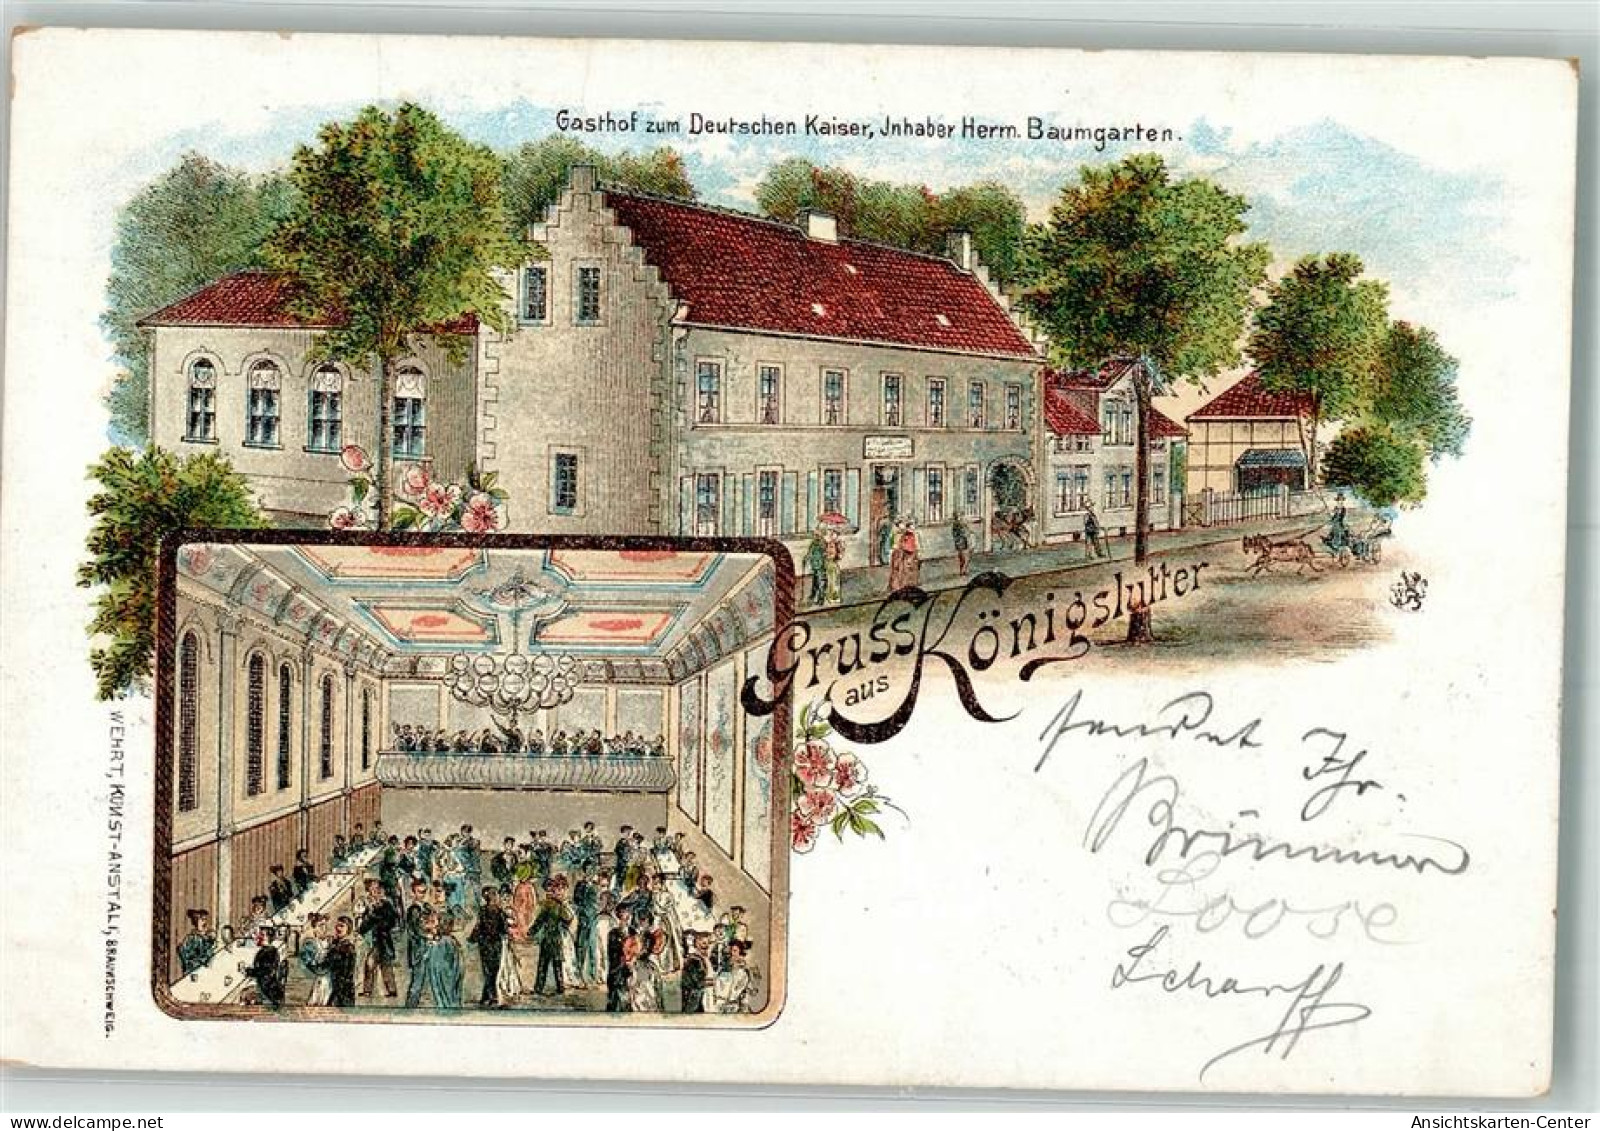 Gasthof zum Deutschen Kaiser, Jnhaber Herm. Baumgarten.
Gruss aus Königslutter
WEHRT, KUNST-ANSTALT, BRAUNSCHWEIG.
sendet Ihr
Loose
Scharff
Ansichtskarten-Center